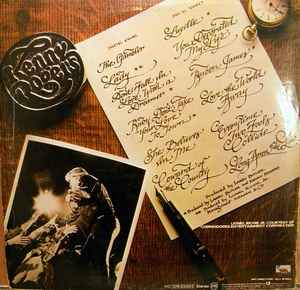 Kenny
Rogers
The Gambler
Lady
Don't Fall In
Love With a
Dreamer
Ruby Don't Take
Your Love
To Town
She Believes
In Me
Coward of
the County
Lucille
You Decorated
My Life
Reuben James
Love the World
Away
Every Time
Two Fools
Collide
Long Arm of
Produced by
LIONEL RICHIE JR. COURTESY OF
COMMODORES ENTERTAINMENT CORPORATION
Stereo